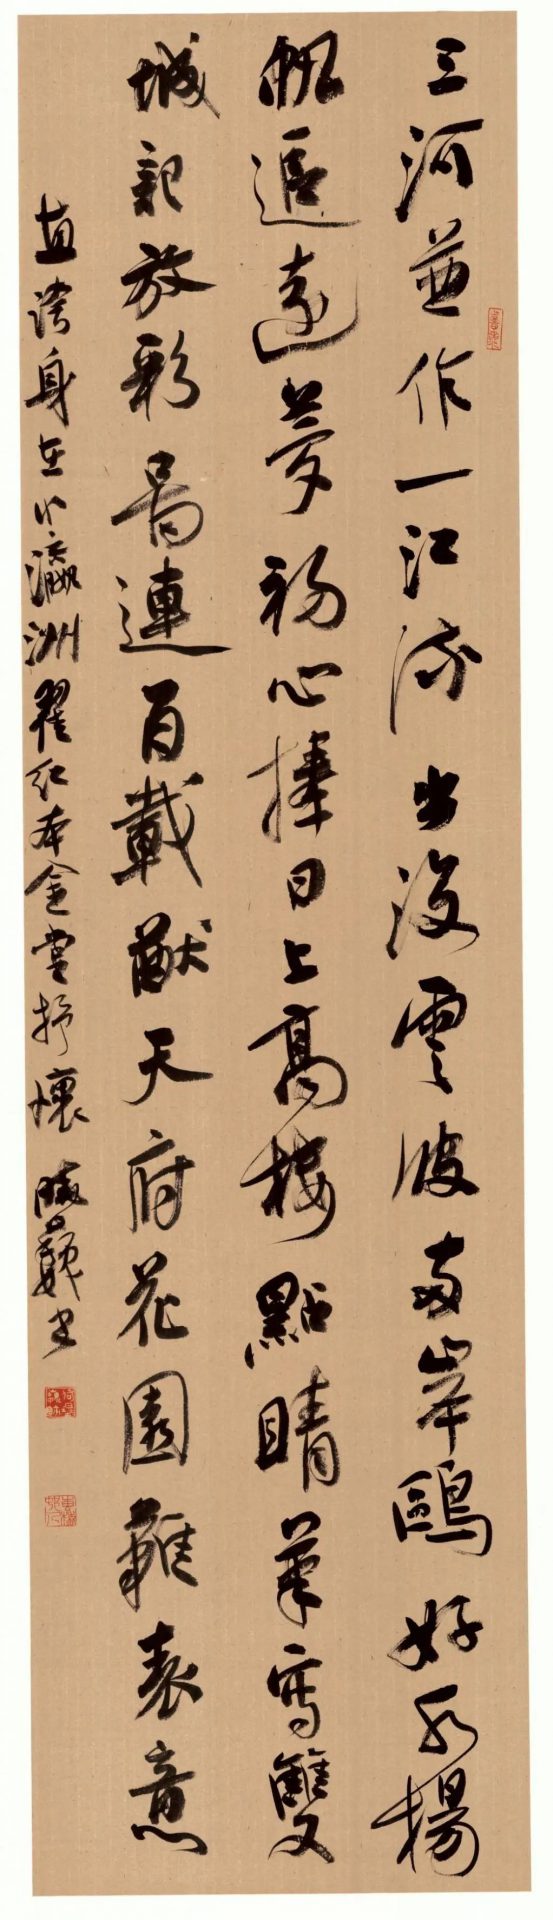 三河並作一江流出沒雲波兩岸鷗好水揚
帆追遠夢初心捧日上高樓點睛筆寫雙
城記放彩圖連百載猷天府花園難表意
直誇身在小瀛洲翟紅本金堂抒懷曉巍書